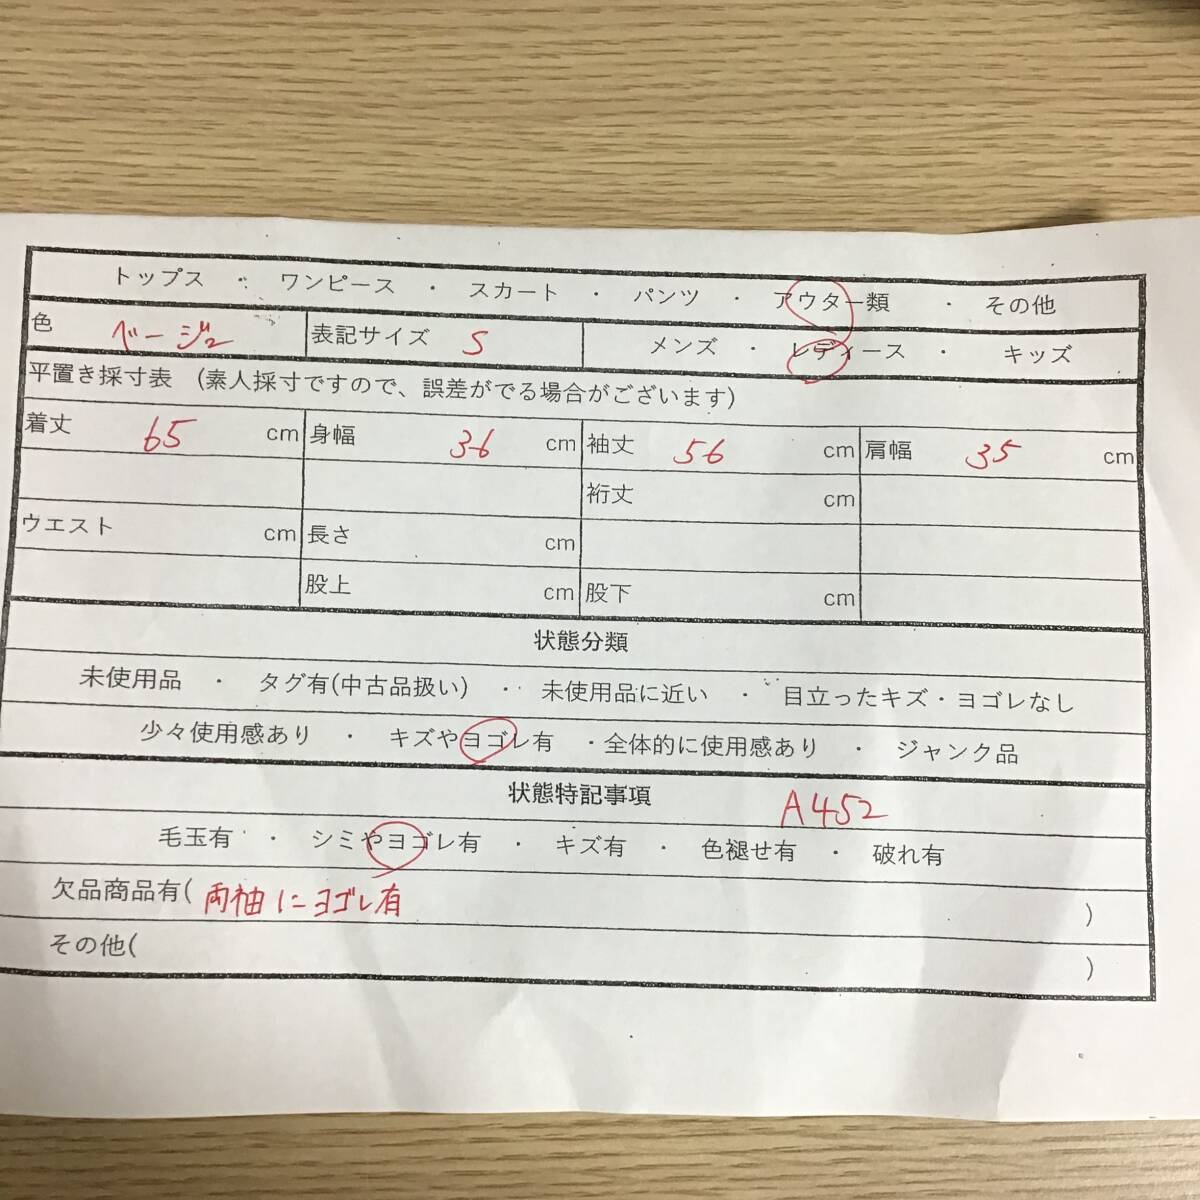 トップス ・ ワンピース ・ スカート ・ パンツ ・ アウター類 ・ その他
色 ベージュ 表記サイズ S メンズ ・ レディース ・ キッズ
平置き採寸表 (素人採寸ですので、誤差がでる場合がございます)
着丈 65 cm 身幅 36 cm 袖丈 56 cm 肩幅 35 cm
裄丈 cm
ウエスト cm 長さ cm
股上 cm 股下 cm
状態分類
未使用品 ・ タグ有(中古品扱い) ・ 未使用品に近い ・ 目立ったキズ・ヨゴレなし
少々使用感あり ・ キズやヨゴレ有 ・全体的に使用感あり ・ ジャンク品
状態特記事項 A452
毛玉有 ・ シミやヨゴレ有 ・ キズ有 ・ 色褪せ有 ・ 破れ有
欠品商品有( 両袖にヨゴレ有 )
その他( )